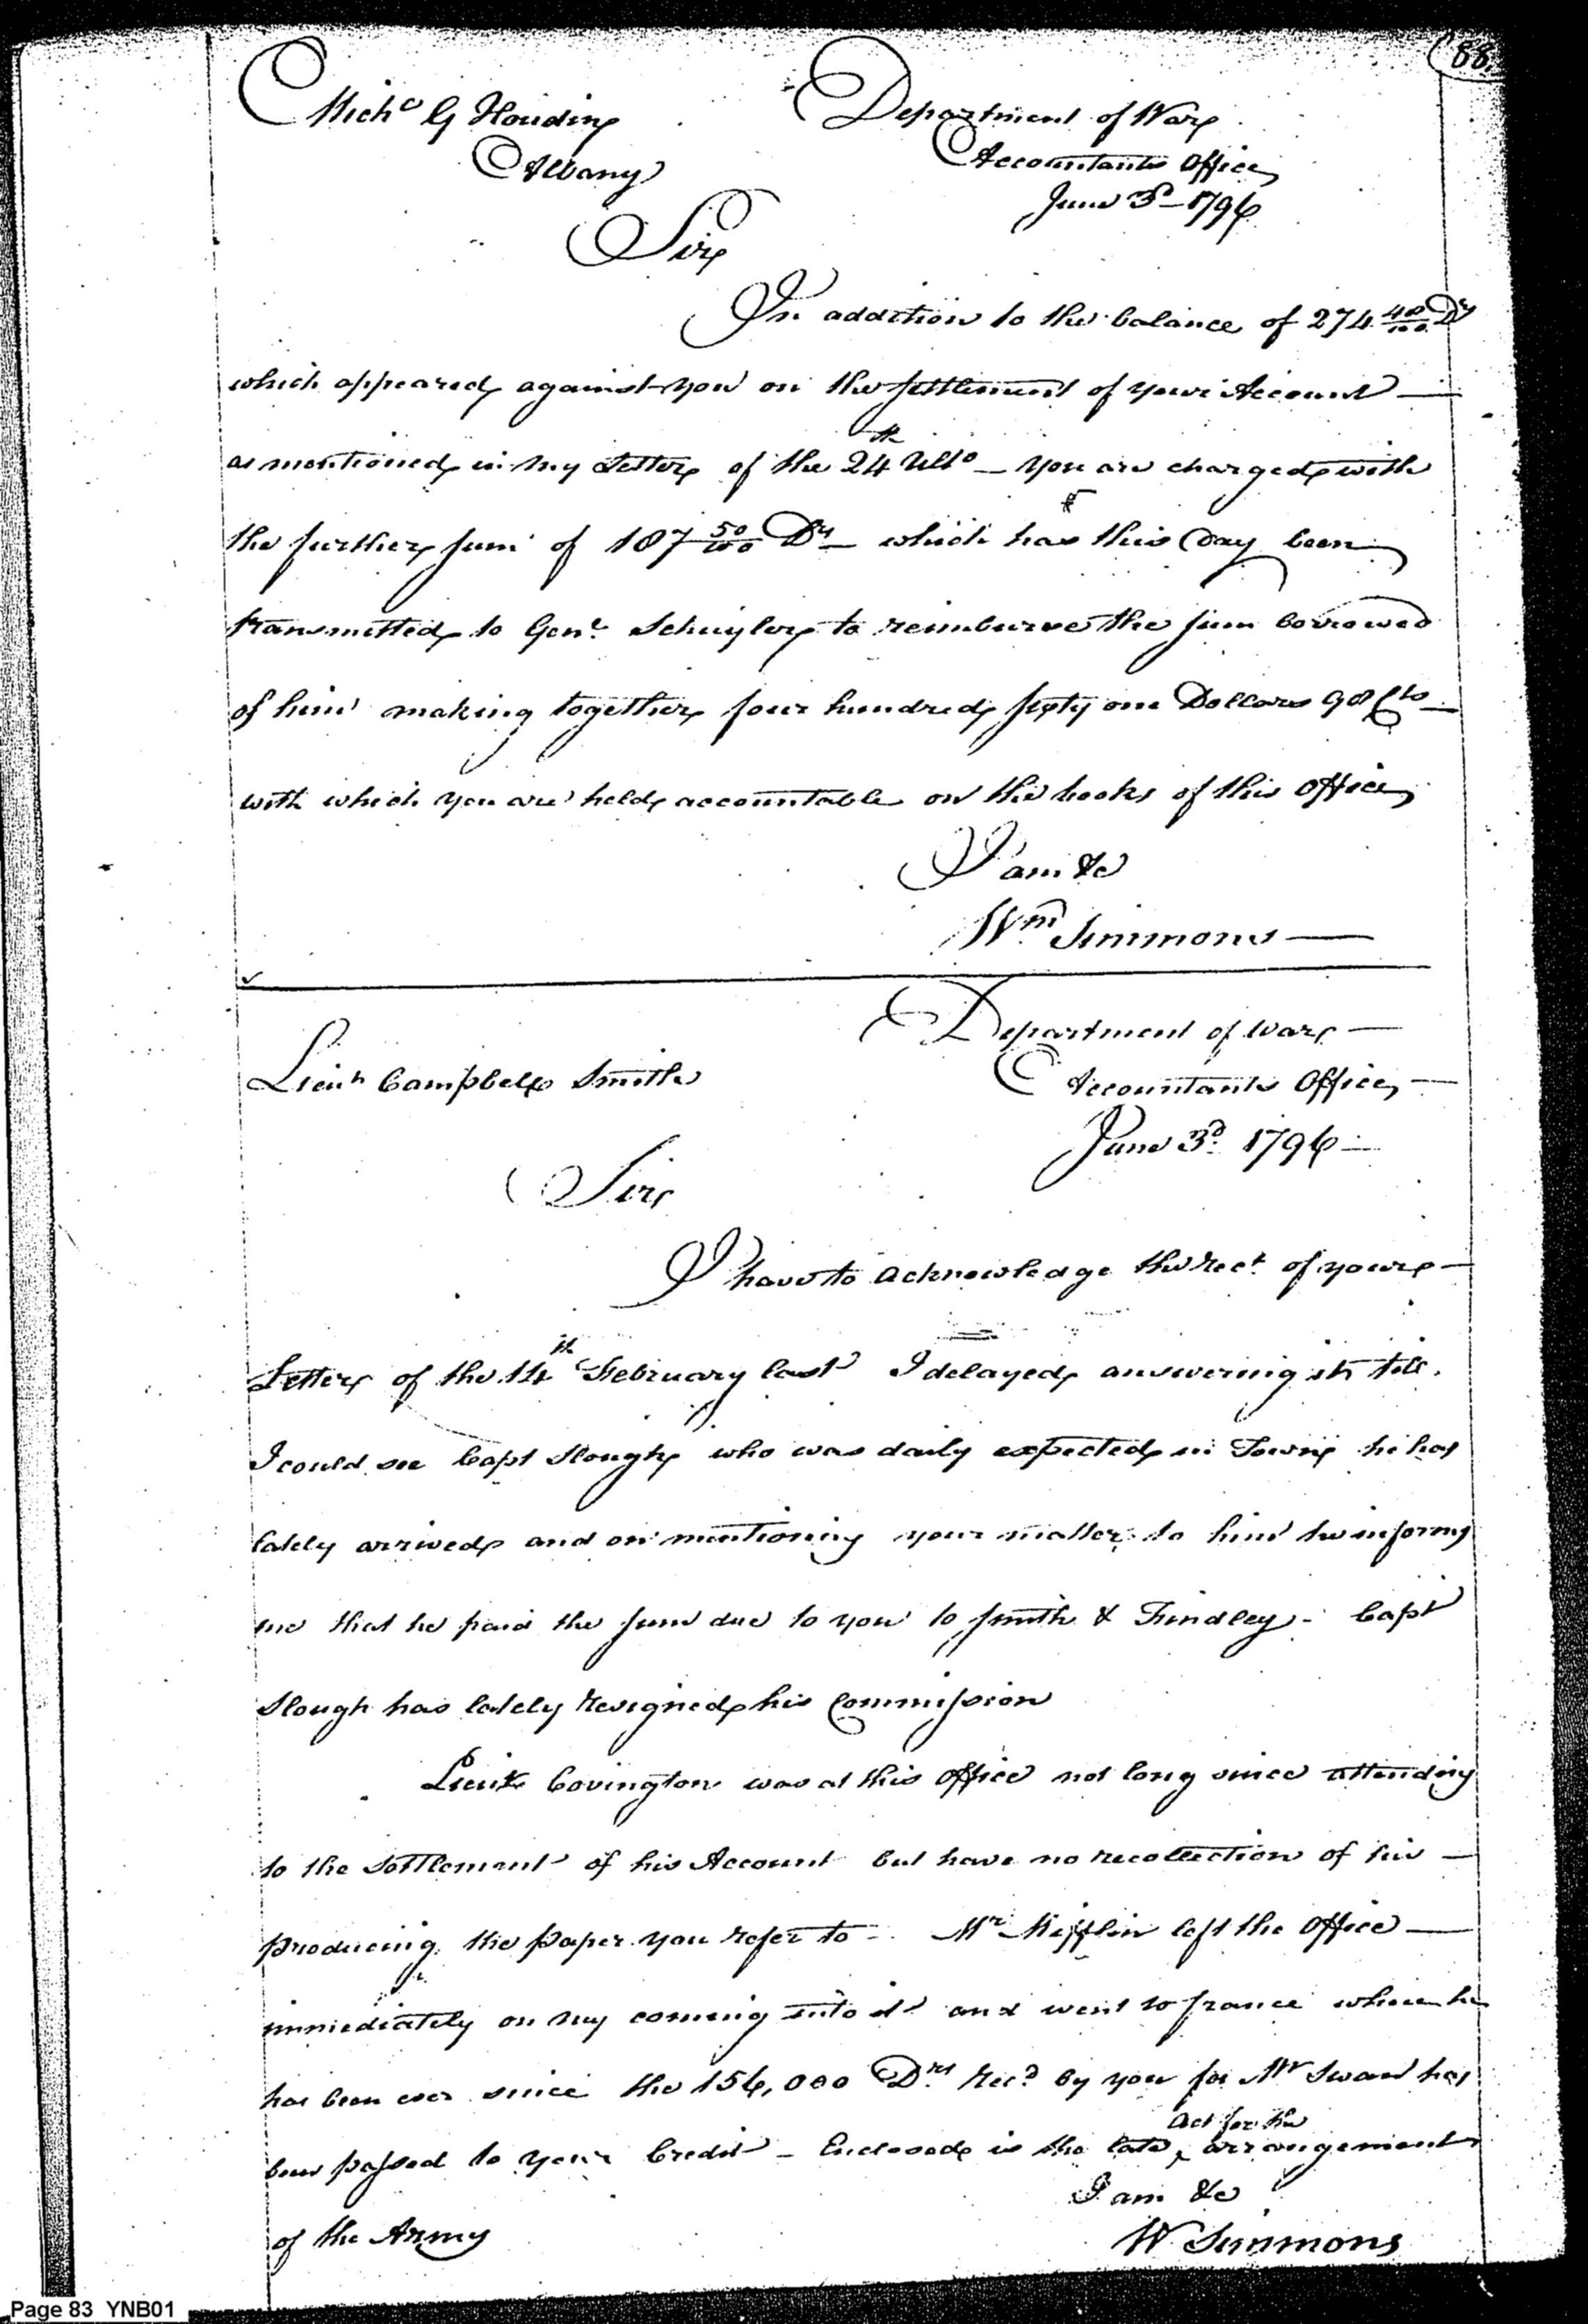 88.
Mich^l G Houdin
Albany
Department of War
Accountants Office
June 3^d 1796
Sir
In addition to the balance of 274 48/100 D^rs
which appeared against you on the settlement of your Account —
as mentioned in my Letter of the 24^th Ult^o — you are charged with
the further sum of 187 50/100 D^rs — which has this Day been
transmitted to Gen^l Schuyler to reimburse the sum borrowed
of him making together four hundred sixty one Dollars 98 Cts —
with which you are held accountable on the books of this office
I am &c
W^m Simmons —
Lieut Campbell Smith
Department of War —
Accountants Office, —
June 3^d 1796 —
Sir
I have to acknowledge the rec^t of your —
Letter of the 14^th February last I delayed answering it till
I could see Capt Slough who was daily expected in Town he has
lately arrived and on mentioning your matter to him he informs
me that he paid the sum due to you to Smith & Findley - Capt
Slough has lately resigned his Commission
Lieut Covington was at this office not long since attending
to the settlement of his Account but have no recollection of his —
producing the paper you refer to - M^r Mifflin left the Office —
immediately on my coming into it and went to france where he
has been ever since the 156,000 D^rs rec^d by you for M^r Swan has
been passed to your Credit - Enclosed is the late ^ Act for the arrangement
of the Army
I am &c
W Simmons
Page 83 YNB01